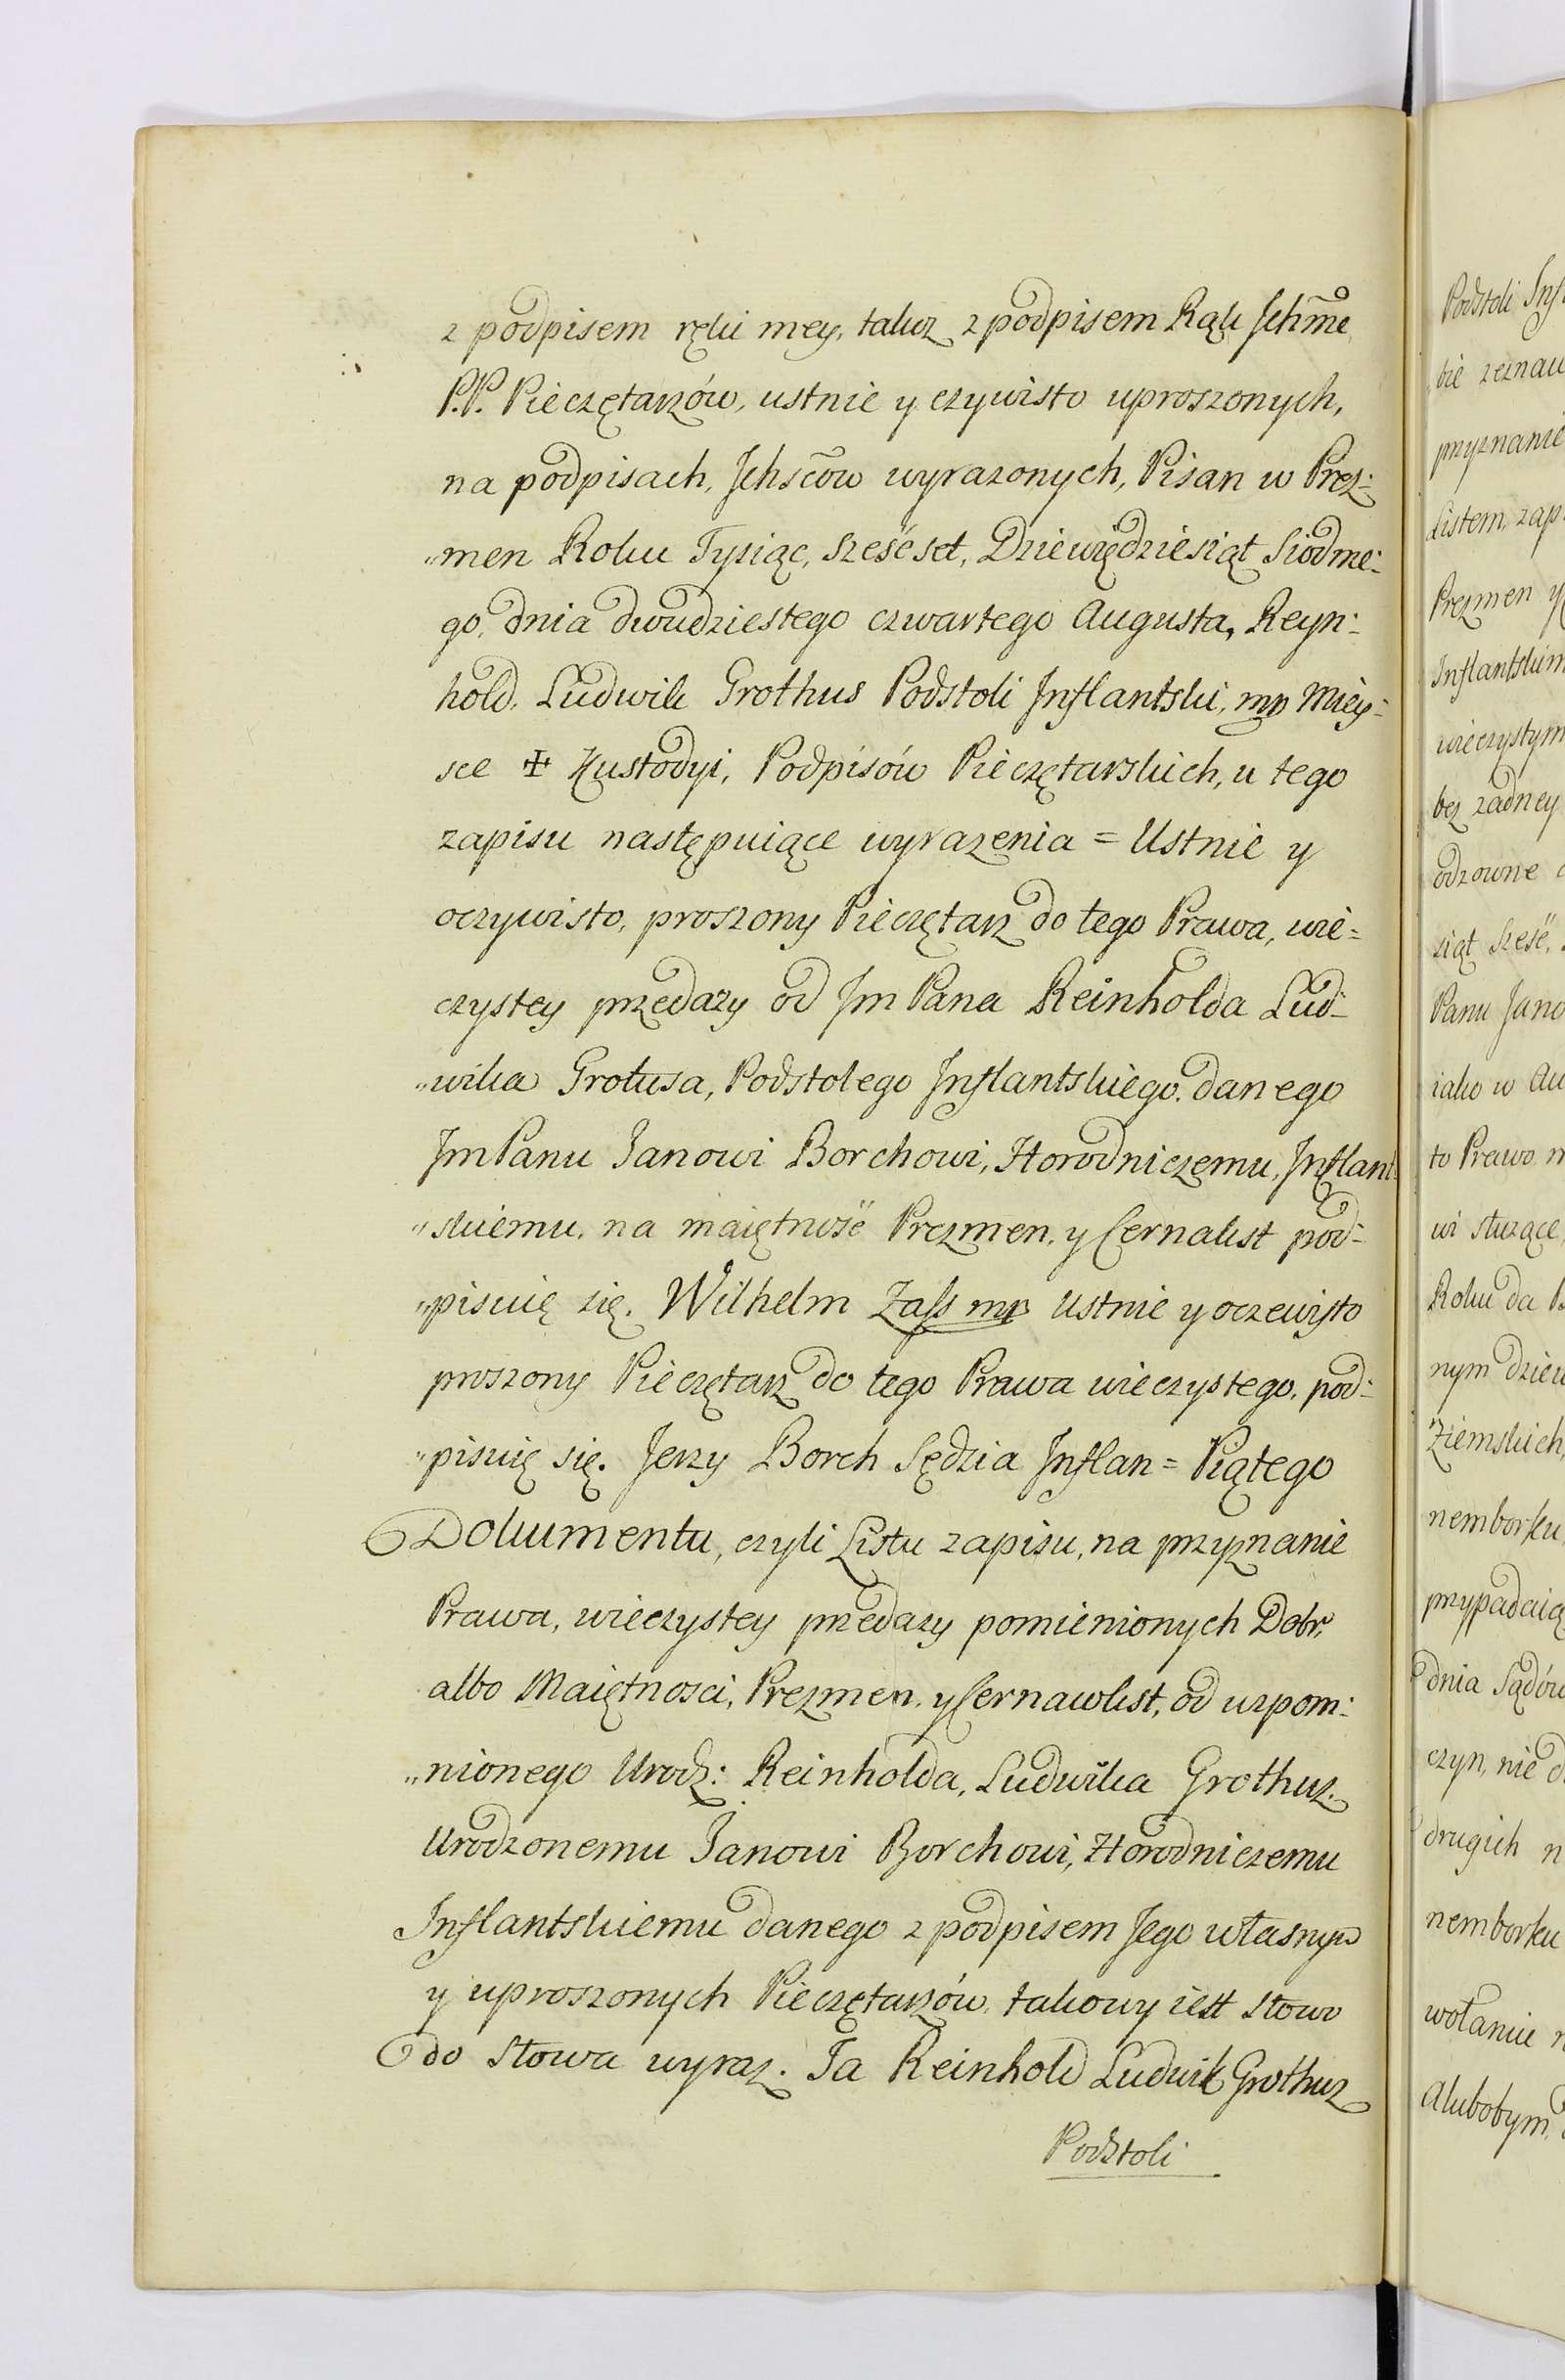 z podpisem ręki mey, takoz z podpisem Rąk Jchme
P.P. Pieczętarzów, ustnie y czywisto uproszonych,
na podpisach, Jchsców wyrazonych, Pisan w Prez:
„men Roku Tysiąc, sześćset, Dziewiędziesiąt Siodme:
go, dnia dwudziestego czwartego Augusta, Reyn:
hold, Ludwik Grothus Podstoli Jnflantski, mp Miey:
sce ✠ Kustodyi, Podpisów Pieczętarskich, u tego
zapisu następuiące wyrazenia = Ustnie y
oczywisto, proszony Pieczętarz do tego Prawa, wie=
czystey przedazy od Jm Pana Reinholda Lud=
„wika Grotusa, Podstolego Jnflantskiego, danego
Jm Panu Janowi Borchowi, Horodniczemu, Jnflant
„skiemu, na maiętność Prezmen, y Cernakst pod=
„pisuię się. Wilhelm Zass mp Ustnie y oczewisto
proszony Pieczętarz do tego Prawa wieczystego, pod=
„pisuię się. Jerzy Borch Sędzia Jnflan = Piątego
Dokumentu, czyli Listu zapisu, na przyznanie
Prawa, wieczystey przedazy pomienionych Dobr,
albo Maiętnosci, Prezmen, y Cernawkst, od wzpom:
„nionego Urodz: Reinholda, Ludwika Grothuz.
Urodzonemu Janowi Borchowi, Horodniczemu
Jnflantskiemu danego z podpisem Jego własnym
y uproszonych Pieczętarzów, takowy iest słowo
do słowa wyraz. Ja Reinhold Ludwik Grothuz
Podstoli
Podstoli Jnf
bie zeznaw
przyznanie
Listem, zap
Prezmen y
Jnflantskim
wieczystym
bez zadney
odzowne
siąt sześć,
Panu Jano
iako w Au
to Prawo n
wi służące
Roku da
nym dzien
Ziemskich,
nemborku
przypadaią
dnia Sądów
czyn, nie d
drugich n
nemborku
wołaniu n
Alubobym